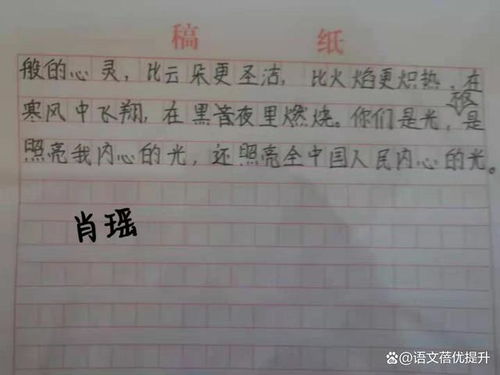 稿 纸
般的心灵，比云朵更圣洁，比火焰更炽热，在
寒风中飞翔，在黑暗夜里燃烧。你们是光，是
照亮我内心的光，还照亮全中国人民内心的光。
肖瑶
知乎 @语文蓓优提升